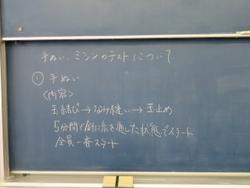 手ぬい、ミシンのテストについて
① 手ぬい
〈内容〉
玉結び→なみ縫い→玉止め
5分間(針に糸を通した状態でスタート
全員一斉スタート